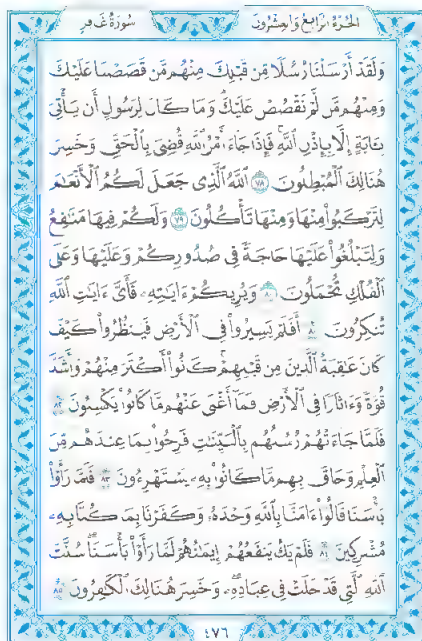 سُورَةُ غَافِرٍ الجُزْءُ الرَّابِعُ وَالعِشْرُونَ
وَلَقَدْ أَرْسَلْنَا رُسُلًا مِّن قَبْلِكَ مِنْهُم مَّن قَصَصْنَا عَلَيْكَ
وَمِنْهُم مَّن لَّمْ نَقْصُصْ عَلَيْكَ ۗ وَمَا كَانَ لِرَسُولٍ أَن يَأْتِيَ
بِـَٔايَةٍ إِلَّا بِإِذْنِ اللَّهِ ۚ فَإِذَا جَاءَ أَمْرُ اللَّهِ قُضِيَ بِالْحَقِّ وَخَسِرَ
هُنَالِكَ الْمُبْطِلُونَ ٧٨ اللَّهُ الَّذِي جَعَلَ لَكُمُ الْأَنْعَٰمَ
لِتَرْكَبُوا مِنْهَا وَمِنْهَا تَأْكُلُونَ ٧٩ وَلَكُمْ فِيهَا مَنَٰفِعُ
وَلِتَبْلُغُوا عَلَيْهَا حَاجَةً فِي صُدُورِكُمْ وَعَلَيْهَا وَعَلَى
الْفُلْكِ تُحْمَلُونَ ٨٠ وَيُرِيكُمْ ءَايَٰتِهِۦ فَأَيَّ ءَايَٰتِ اللَّهِ
تُنكِرُونَ ٨١ أَفَلَمْ يَسِيرُوا فِي الْأَرْضِ فَيَنظُرُوا كَيْفَ
كَانَ عَٰقِبَةُ الَّذِينَ مِن قَبْلِهِمْ ۚ كَانُوا أَكْثَرَ مِنْهُمْ وَأَشَدَّ
قُوَّةً وَءَاثَارًا فِي الْأَرْضِ فَمَا أَغْنَىٰ عَنْهُم مَّا كَانُوا يَكْسِبُونَ ٨٢
فَلَمَّا جَاءَتْهُمْ رُسُلُهُم بِالْبَيِّنَٰتِ فَرِحُوا بِمَا عِندَهُم مِّنَ
الْعِلْمِ وَحَاقَ بِهِم مَّا كَانُوا بِهِۦ يَسْتَهْزِءُونَ ٨٣ فَلَمَّا رَأَوْا
بَأْسَنَا قَالُوا ءَامَنَّا بِاللَّهِ وَحْدَهُۥ وَكَفَرْنَا بِمَا كُنَّا بِهِۦ
مُشْرِكِينَ ٨٤ فَلَمْ يَكُ يَنفَعُهُمْ إِيمَٰنُهُمْ لَمَّا رَأَوْا بَأْسَنَا ۖ سُنَّتَ
اللَّهِ الَّتِي قَدْ خَلَتْ فِي عِبَادِهِۦ ۖ وَخَسِرَ هُنَالِكَ الْكَٰفِرُونَ ٨٥
٤٧٦